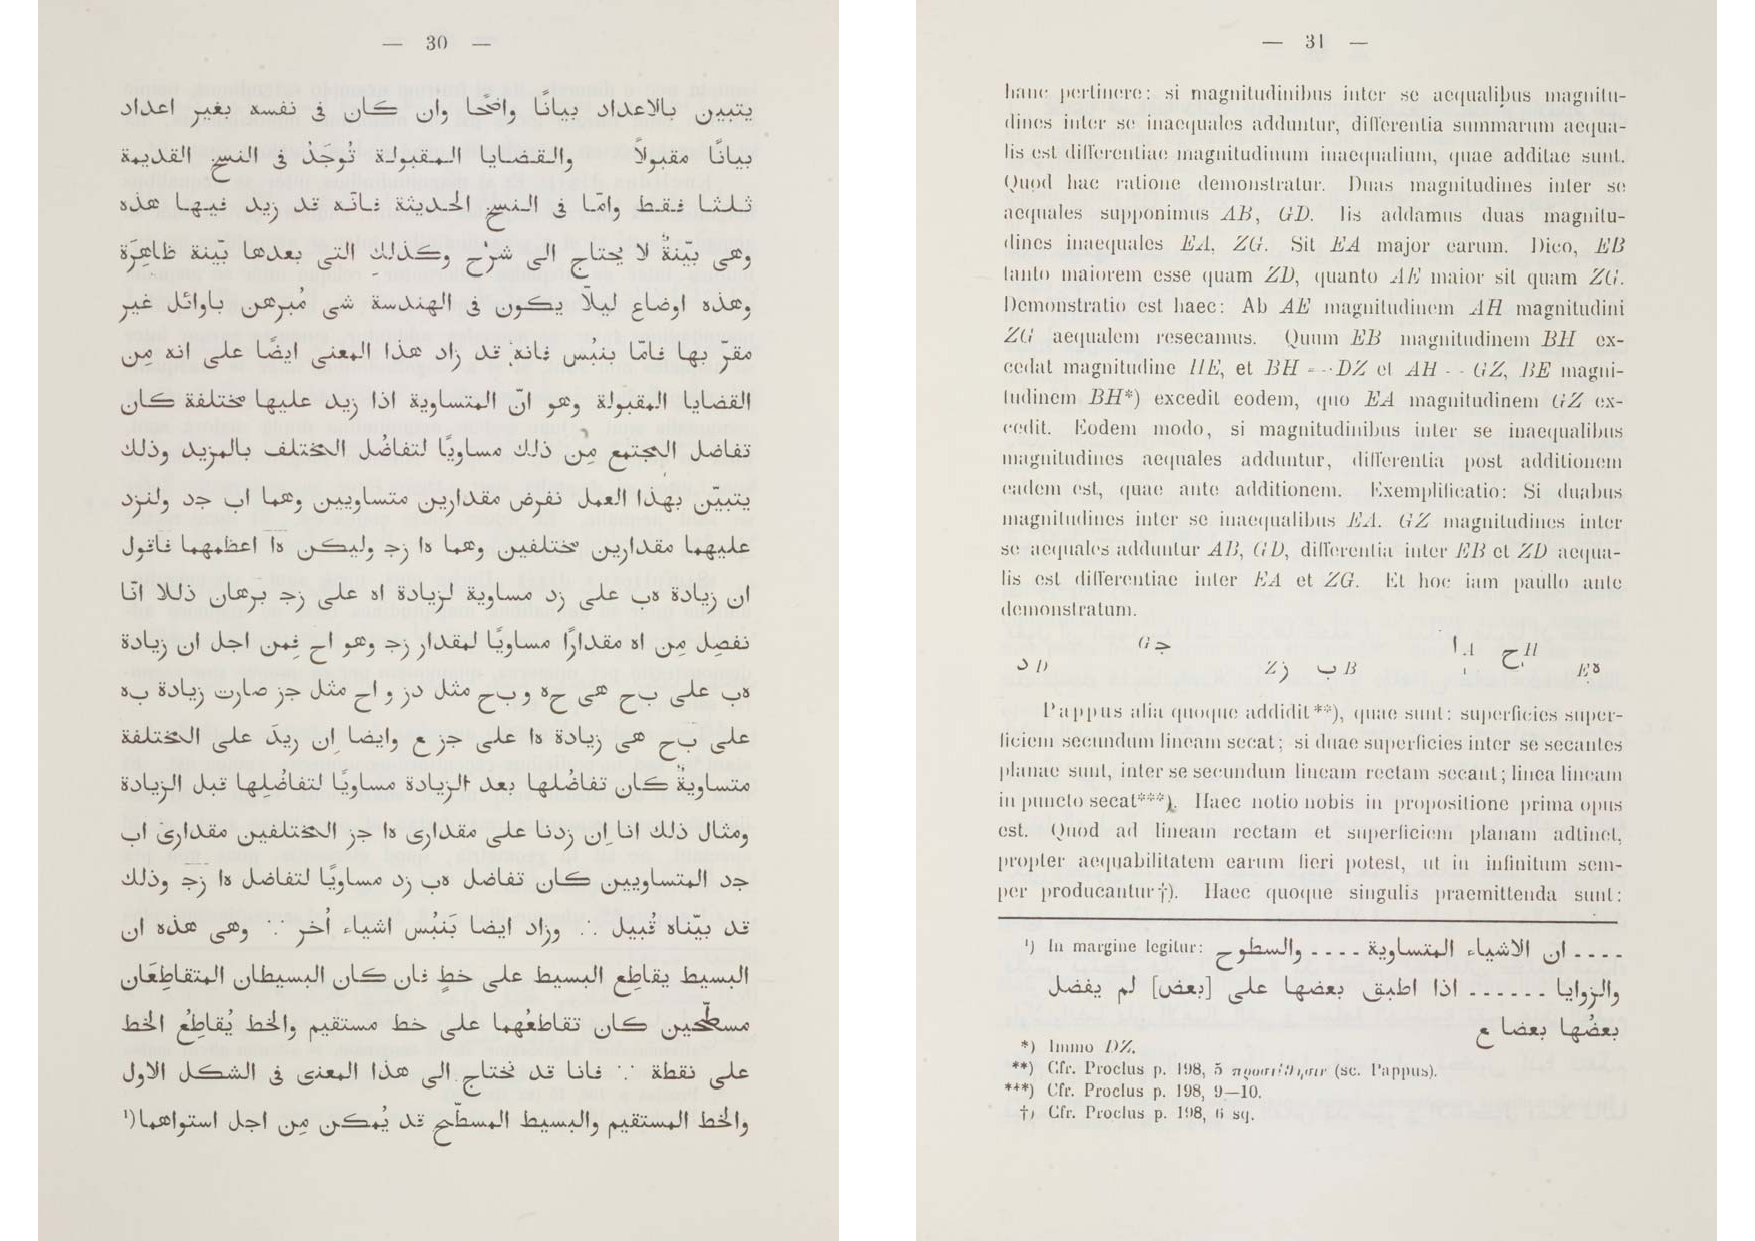 — 30 —
يتبين بالاعداد بيانًا واضحًا وان كان فى نفسه بغير اعداد
بيانًا مقبولاً والقضايا المقبولة تُوجَدُ فى النسخ القديمة
ثلثا فقط وامّا فى النسخ الحديثة فانّه قد زيد فيها هذه
وهى بيّنةٌ لا يحتاج الى شرْح وكذلكِ التى بعدها بيّنة ظاهِرَة
وهذه اوضاع ليلّا يكون فى الهندسة شى مُبرهن باوائل غير
مقرّ بها فامّا بنبُس فانه قد زاد هذا المعنى ايضًا على انه مِن
القضايا المقبولة وهو انّ المتساوية اذا زيد عليها مختلفة كان
تفاضل المجتمع مِن ذلك مساويًا لتفاضُل المختلف بالمزيد وذلك
يتبيّن بهذا العمل نفرض مقدارين متساويين وهما اب جد ولنزد
عليهما مقدارين مختلفين وهما ها زج وليكن ها اعظمهما فاقول
ان زيادة هب على زد مساوية لزيادة اه على زج برهان ذلك انّا
نفصِل مِن اه مقدارًا مساويًا لمقدار زج وهو اح فِمن اجل ان زيادة
هب على بح هى حه وبح مثل دز و اح مثل جز صارت زيادة به
على بح هى زيادة ها على جز ع وايضا اِن ريدَ على المختلفة
متساويةٌ كان تفاضُلها بعد الزيادة مساويًا لتفاضُلِها قبل الزيادة
ومثال ذلك انا اِن زدنا على مقدارى ها جز المختلفين مقدارىَ اب
جد المتساويين كان تفاضل هب زد مساويًا لتفاضل ها زج وذلك
قد بيّناه قُبيل ∴ وزاد ايضا بَنبُس اشياء اُخر ∵ وهى هذه ان
البسيط يقاطِع البسيط على خطٍ فان كان البسيطان المتقاطِعَان
مسطّحين كان تقاطعُهما على خط مستقيم والخط يُقاطِعُ الخط
على نقطة ∵ فانا قد نحتاج الى هذا المعنى فى الشكل الاول
والخط المستقيم والبسيط المسطّح قد يُمكن مِن اجل استواهما(¹
— 31 —
hanc pertinere: si magnitudinibus inter se aequalibus magnitu-
dines inter se inaequales adduntur, differentia summarum aequa-
lis est differentiae magnitudinum inaequalium, quae additae sunt.
Quod hac ratione demonstratur. Duas magnitudines inter se
aequales supponimus AB, GD. Iis addamus duas magnitu-
dines inaequales EA, ZG. Sit EA major earum. Dico, EB
tanto maiorem esse quam ZD, quanto AE maior sit quam ZG.
Demonstratio est haec: Ab AE magnitudinem AH magnitudini
ZG aequalem resecamus. Quum EB magnitudinem BH ex-
cedat magnitudine HE, et BH = DZ et AH = GZ, BE magni-
tudinem BH*) excedit eodem, quo EA magnitudinem GZ ex-
cedit. Eodem modo, si magnitudinibus inter se inaequalibus
magnitudines aequales adduntur, differentia post additionem
eadem est, quae ante additionem. Exemplificatio: Si duabus
magnitudines inter se inaequalibus EA, GZ magnitudines inter
se aequales adduntur AB, GD, differentia inter EB et ZD aequa-
lis est differentiae inter EA et ZG. Et hoc iam paullo ante
demonstratum.
G ج A ا H ح
D د Z ز B ب E ه
Pappus alia quoque addidit**), quae sunt: superficies super-
ficiem secundum lineam secat; si duae superficies inter se secantes
planae sunt, inter se secundum lineam rectam secant; linea lineam
in puncto secat***). Haec notio nobis in propositione prima opus
est. Quod ad lineam rectam et superficiem planam adtinet,
propter aequabilitatem earum fieri potest, ut in infinitum sem-
per producantur†). Haec quoque singulis praemittenda sunt:
¹) In margine legitur: .... ان الاشياء المتساوية .... والسطوح
والزوايا ...... اذا اطبق بعضها على [بعض] لم يفضل
بعضُها بعضا ع
*) Immo DZ.
**) Cfr. Proclus p. 198, 5 προστίθησιν (sc. Pappus).
***) Cfr. Proclus p. 198, 9—10.
†) Cfr. Proclus p. 198, 6 sq.